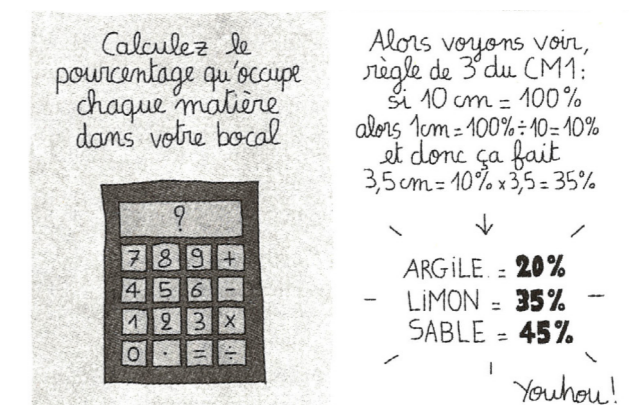 Calculez le
pourcentage qu'occupe
chaque matière
dans votre bocal
?
7 8 9 +
4 5 6 -
1 2 3 x
0 . = ÷
Alors voyons voir,
règle de 3 du CM1:
si 10 cm = 100%
alors 1cm = 100% ÷ 10 = 10%
et donc ça fait
3,5 cm = 10% x 3,5 = 35%
ARGiLE = 20%
LiMON = 35%
SABLE = 45%
Youhou!